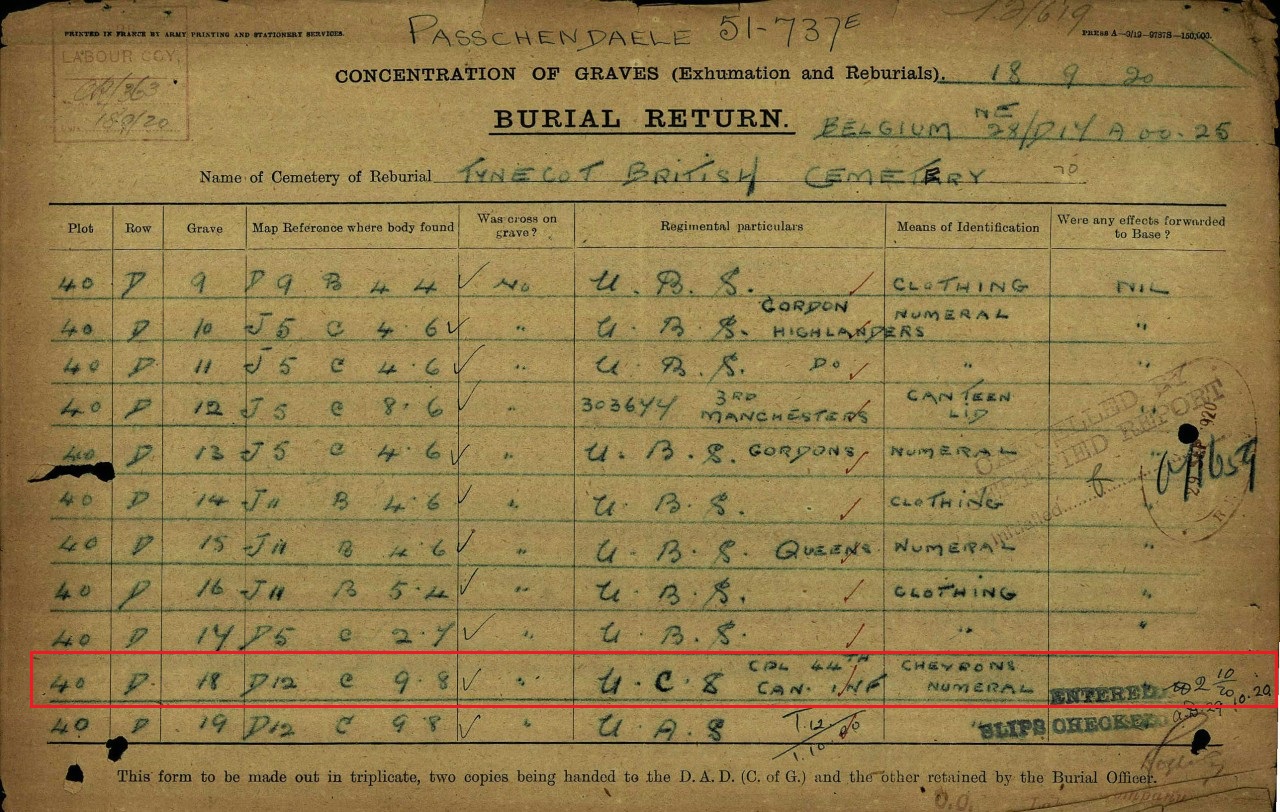 12/619
PASSCHENDAELE 51-737E
PRINTED IN FRANCE BY ARMY PRINTING AND STATIONERY SERVICES.
PRESS A—9/19—9797S—150,000.
LABOUR COY.
CONCENTRATION OF GRAVES (Exhumation and Reburials). 18 9 20
BURIAL RETURN. BELGIUM NE 28/D14 A 00.25
Name of Cemetery of Reburial TYNECOT BRITISH CEMETERY
Plot Row Grave Map Reference where body found Was cross on grave? Regimental particulars Means of Identification Were any effects forwarded to Base?
40 D 9 D 9 B 4 4 ✓ No U. B. S. ✓ CLOTHING NIL
40 D 10 J 5 C 4.6 ✓ " U. B. S. GORDON HIGHLANDERS NUMERAL "
40 D 11 J 5 C 4.6 ✓ " U. B. S. DO ✓ " "
40 D 12 J 5 C 8.6 ✓ " 303644 3RD MANCHESTERS ✓ CANTEEN LID "
40 D 13 J 5 C 4.6 ✓ " U. B. S. GORDONS ✓ NUMERAL "
40 D 14 J 11 B 4.6 ✓ " U. B. S. ✓ CLOTHING "
40 D 15 J 11 B 4.6 ✓ " U. B. S. QUEENS ✓ NUMERAL "
40 D 16 J 11 B 5.4 ✓ " U. B. S. ✓ CLOTHING "
40 D 17 D 5 C 2.7 ✓ " U. B. S. ✓ " "
40 D. 18 D12 C 9.8 ✓ " U. C. S CPL 44TH CAN. INF ✓ CHEVRONS NUMERAL
40 D 19 D12 C 9 8 ✓ " U. A. S "
CANCELLED BY
CERTIFIED REPORT
Initialled
29 SEP 1920
ENTERED
SLIPS CHECKED
This form to be made out in triplicate, two copies being handed to the D. A. D. (C. of G.) and the other retained by the Burial Officer.